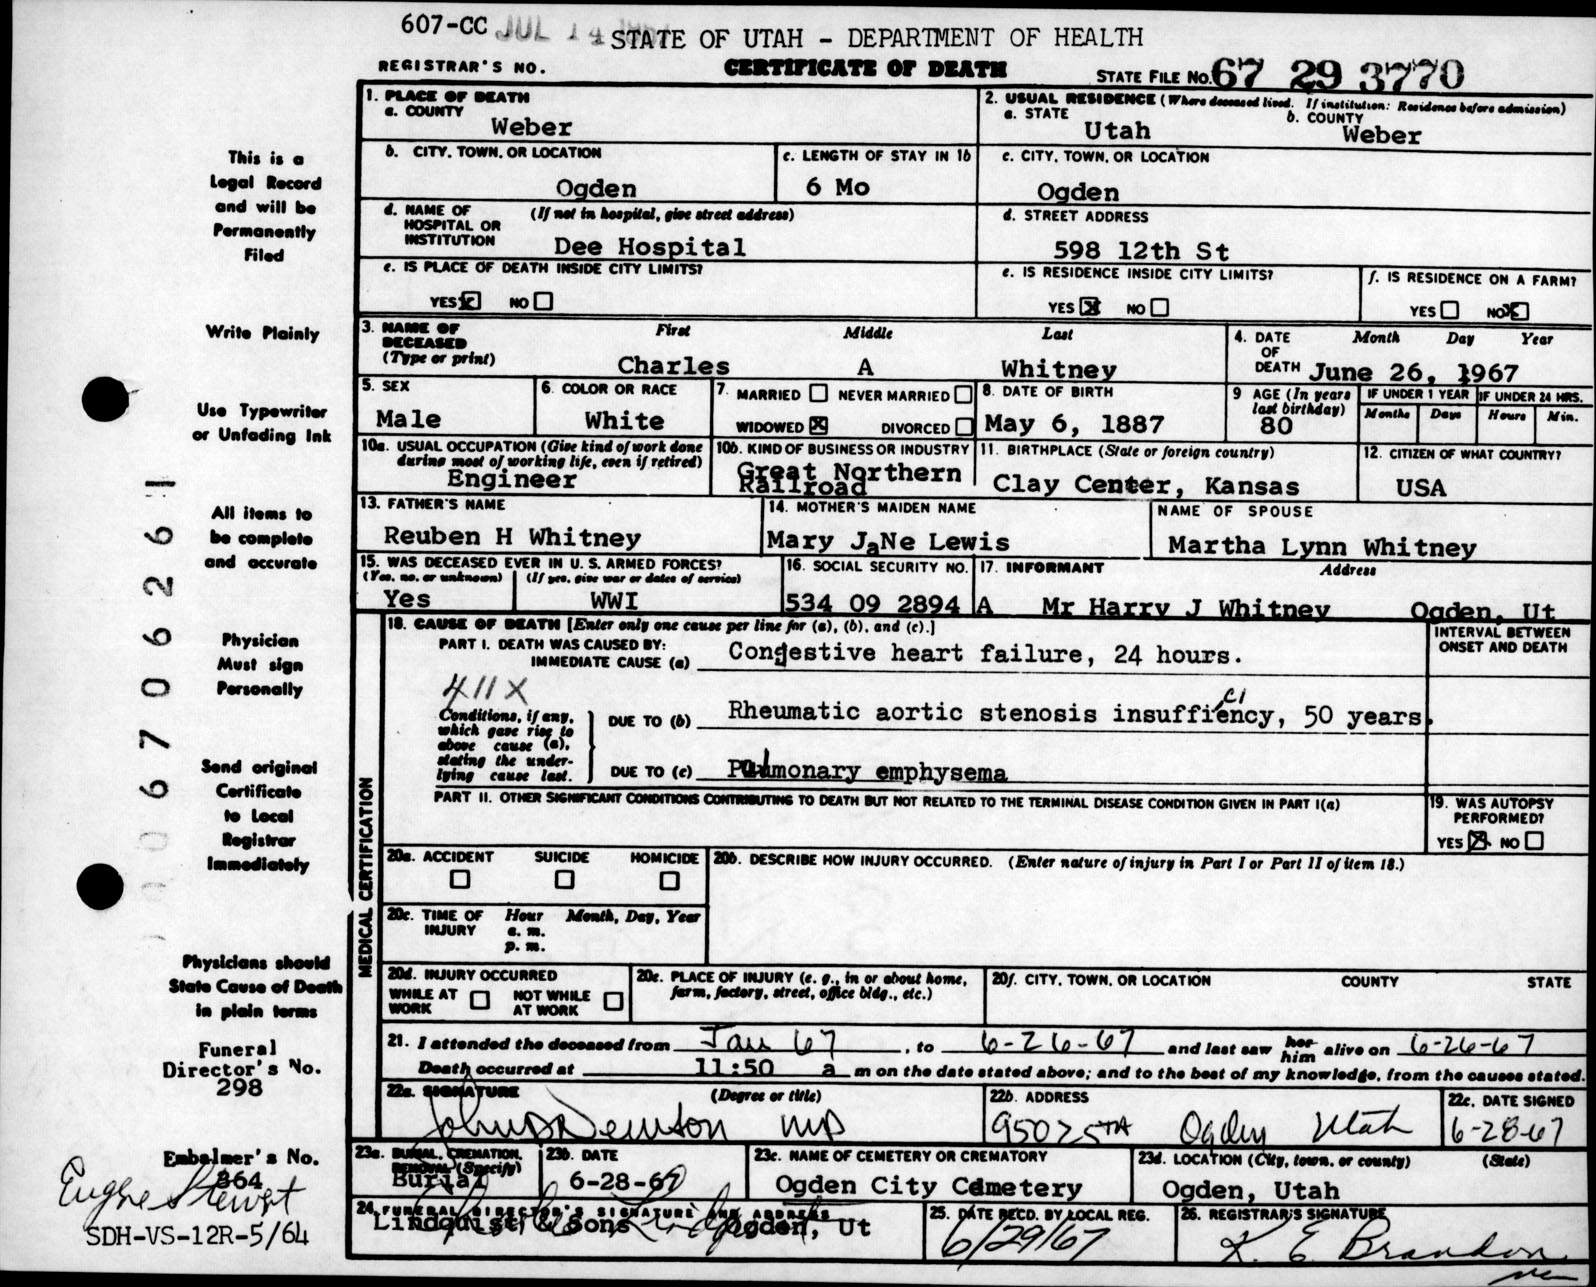 607-CC JUL 14
STATE OF UTAH - DEPARTMENT OF HEALTH
REGISTRAR'S NO. CERTIFICATE OF DEATH STATE FILE NO. 67 29 3770
This is a
Legal Record
and will be
Permanently
Filed
Write Plainly
Use Typewriter
or Unfading Ink
All items to
be complete
and accurate
Physician
Must sign
Personally
Send original
Certificate
to Local
Registrar
Immediately
Physicians should
State Cause of Death
in plain terms
Funeral
Director's No.
298
Embalmer's No.
864
Eugene Stewart
SDH-VS-12R-5/64
006706261
1. PLACE OF DEATH
a. COUNTY
Weber
2. USUAL RESIDENCE (Where deceased lived. If institution: Residence before admission)
a. STATE b. COUNTY
Utah Weber
b. CITY, TOWN, OR LOCATION c. LENGTH OF STAY IN 1b c. CITY, TOWN, OR LOCATION
Ogden 6 Mo Ogden
d. NAME OF HOSPITAL OR INSTITUTION (If not in hospital, give street address)
Dee Hospital
d. STREET ADDRESS
598 12th St
e. IS PLACE OF DEATH INSIDE CITY LIMITS?
YES X NO
e. IS RESIDENCE INSIDE CITY LIMITS?
YES X NO
f. IS RESIDENCE ON A FARM?
YES NO X
3. NAME OF DECEASED (Type or print) First Middle Last
Charles A Whitney
4. DATE OF DEATH Month Day Year
June 26, 1967
5. SEX
Male
6. COLOR OR RACE
White
7. MARRIED NEVER MARRIED
WIDOWED X DIVORCED
8. DATE OF BIRTH
May 6, 1887
9 AGE (In years last birthday)
80
IF UNDER 1 YEAR IF UNDER 24 HRS.
Months Days Hours Min.
10a. USUAL OCCUPATION (Give kind of work done during most of working life, even if retired)
Engineer
10b. KIND OF BUSINESS OR INDUSTRY
Great Northern
Railroad
11. BIRTHPLACE (State or foreign country)
Clay Center, Kansas
12. CITIZEN OF WHAT COUNTRY?
USA
13. FATHER'S NAME
Reuben H Whitney
14. MOTHER'S MAIDEN NAME
Mary JaNe Lewis
NAME OF SPOUSE
Martha Lynn Whitney
15. WAS DECEASED EVER IN U. S. ARMED FORCES?
(Yes, no, or unknown) (If yes, give war or dates of service)
Yes WWI
16. SOCIAL SECURITY NO.
534 09 2894 A
17. INFORMANT Address
Mr Harry J Whitney Ogden, Ut
MEDICAL CERTIFICATION
18. CAUSE OF DEATH [Enter only one cause per line for (a), (b), and (c).]
INTERVAL BETWEEN ONSET AND DEATH
PART I. DEATH WAS CAUSED BY:
IMMEDIATE CAUSE (a) Congestive heart failure, 24 hours.
411X
Conditions, if any, which gave rise to above cause (a), stating the underlying cause last.
DUE TO (b) Rheumatic aortic stenosis insufficiency, 50 years.
DUE TO (c) Pulmonary emphysema
PART II. OTHER SIGNIFICANT CONDITIONS CONTRIBUTING TO DEATH BUT NOT RELATED TO THE TERMINAL DISEASE CONDITION GIVEN IN PART I(a)
19. WAS AUTOPSY PERFORMED?
YES X NO
20a. ACCIDENT SUICIDE HOMICIDE
20b. DESCRIBE HOW INJURY OCCURRED. (Enter nature of injury in Part I or Part II of item 18.)
20c. TIME OF INJURY Hour Month, Day, Year
a. m.
p. m.
20d. INJURY OCCURRED
WHILE AT WORK NOT WHILE AT WORK
20e. PLACE OF INJURY (e. g., in or about home, farm, factory, street, office bldg., etc.)
20f. CITY, TOWN, OR LOCATION COUNTY STATE
21. I attended the deceased from Jan 67, to 6-26-67 and last saw her him alive on 6-26-67
Death occurred at 11:50 a m on the date stated above; and to the best of my knowledge, from the causes stated.
22a. SIGNATURE (Degree or title)
MD
22b. ADDRESS
950 25TH Ogden Utah
22c. DATE SIGNED
6-28-67
23a. BURIAL, CREMATION, REMOVAL (Specify)
Burial
23b. DATE
6-28-67
23c. NAME OF CEMETERY OR CREMATORY
Ogden City Cemetery
23d. LOCATION (City, town, or county) (State)
Ogden, Utah
24. FUNERAL DIRECTOR'S SIGNATURE AND ADDRESS
Lindquist & Sons Ogden, Ut
25. DATE RECD. BY LOCAL REG.
6/29/67
26. REGISTRAR'S SIGNATURE
K. E. Brandon